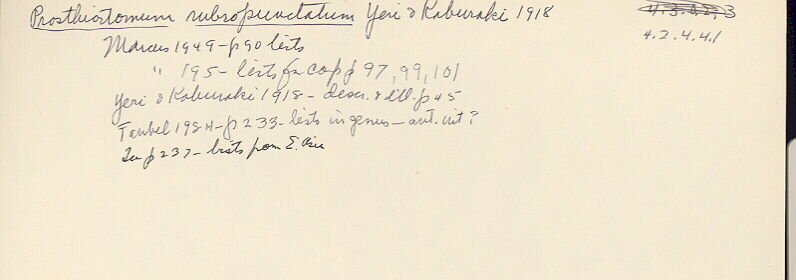 Prosthiostomum rubropunctatum Yeri & Kaburaki 1918
4.3.0.2.3
4.2.4.4.1
Marcus 1949 - p 90 lists
" 195- lists for cop p 97, 99, 101
Yeri & Kaburaki 1918 - descr. & ill. p 45
Faubel 1984 - p 233 - lists in genus - aut. int ?
p 237 - lists from E.